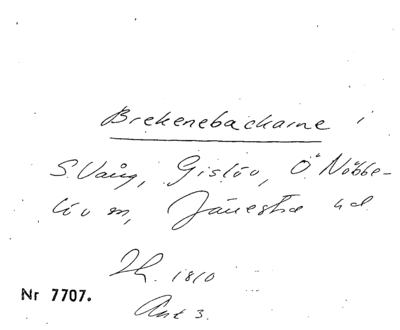 Brekenebackarne
S. Vång, Gislöv, Ö Nöbbe-
löv m,
Lk. 1810
Akt 3.
Nr 7707.